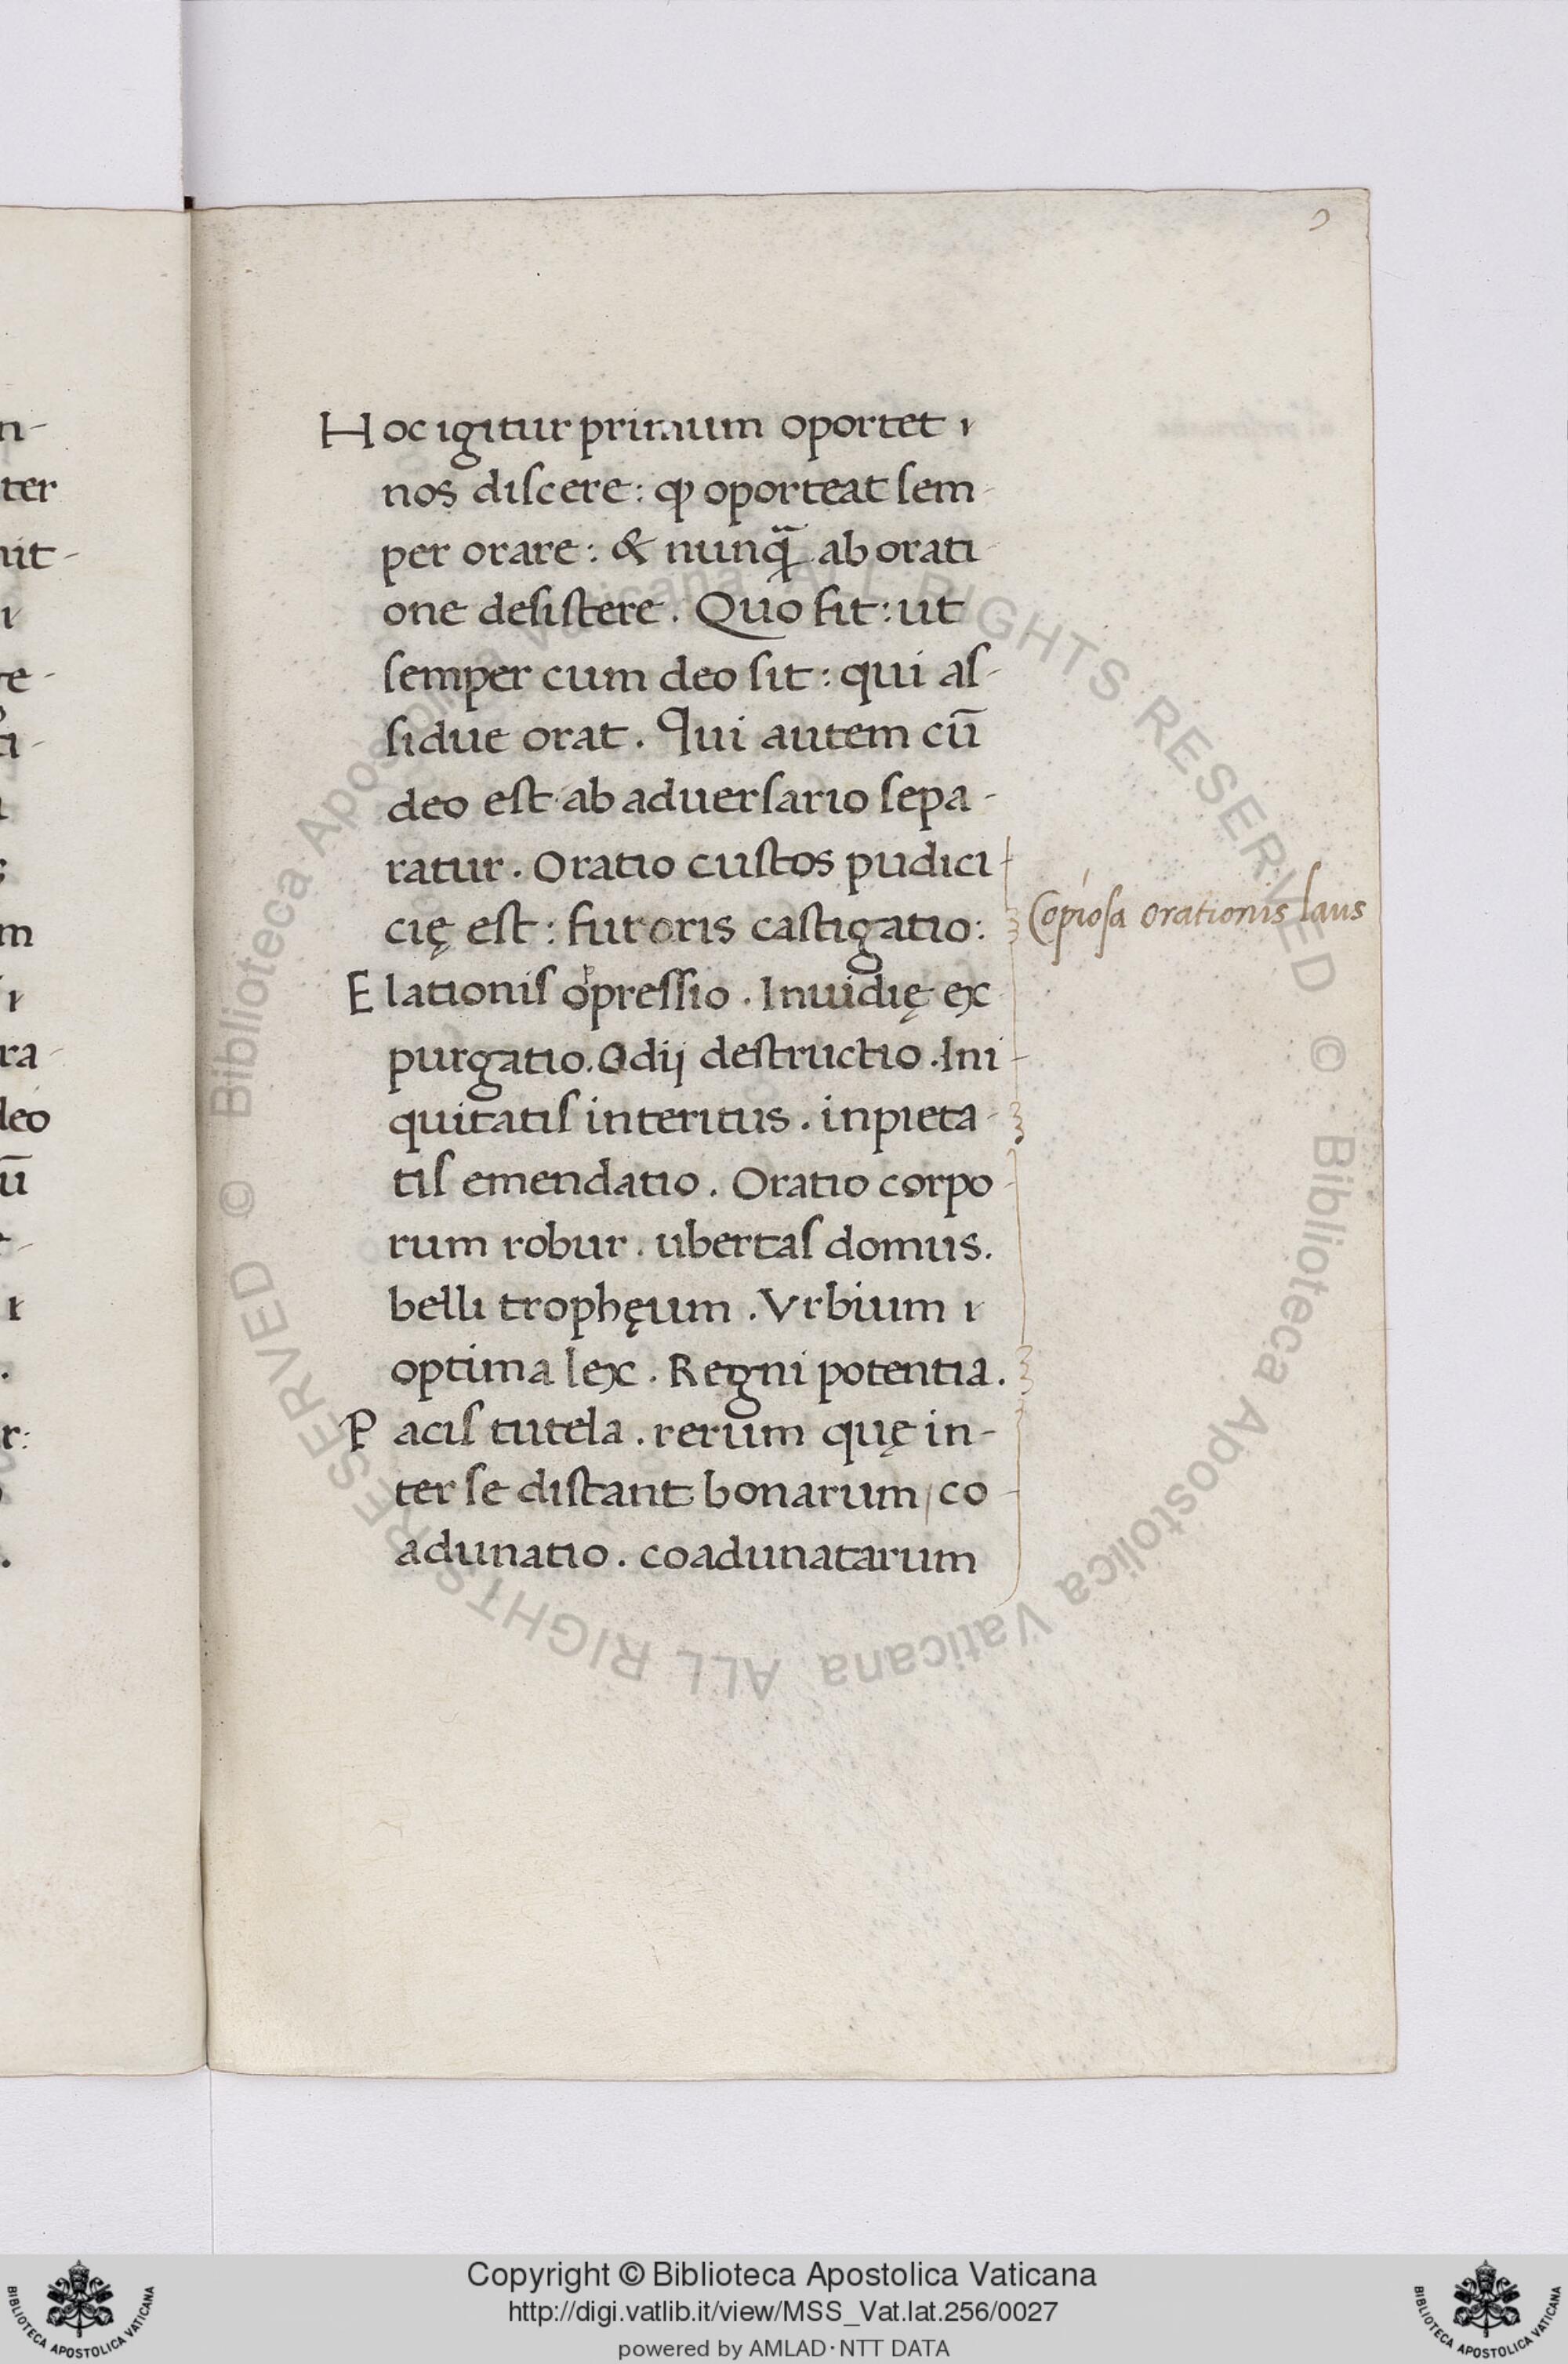 Hoc igitur primum oportet
nos discere: ꝙ oporteat sem-
per orare: & nunꝗ̃ ab orati-
one desistere. Quo fit: ut
semper cum deo sit: qui as-
sidue orat. Qui autem cū
deo est ab aduersario sepa-
ratur. Oratio custos pudici-
cię est: furoris castigatio:
Elationis opressio. Inuidię ex
purgatio. Odij destructio. Ini-
quitatis interitus. inpieta-
tis emendatio. Oratio corpo-
rum robur. ubertas domus.
belli trophęum. Vrbium
optima lex. Regni potentia.
Pacis tutela. rerum quę in-
ter se distant bonarum / co-
adunatio. coadunatarum
Copiosa orationis laus
n-
ter
nit-
ra-
deo
ū
Copyright © Biblioteca Apostolica Vaticana
http://digi.vatlib.it/view/MSS_Vat.lat.256/0027
powered by AMLAD·NTT DATA
BIBLIOTECA APOSTOLICA VATICANA
BIBLIOTECA APOSTOLICA VATICANA
© Biblioteca Apostolica Vaticana ALL RIGHTS RESERVED
© Biblioteca Apostolica Vaticana ALL RIGHTS RESERVED